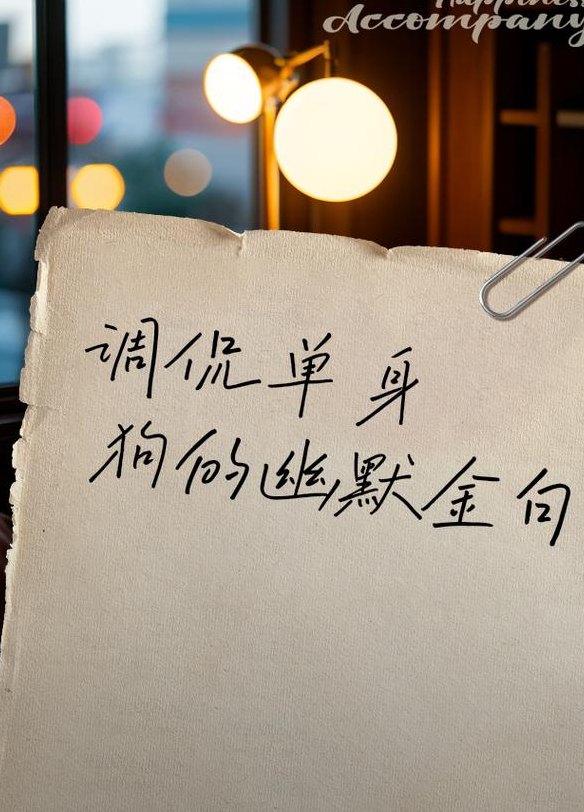 Happiness
Accompany
调侃单身
狗的幽默金句